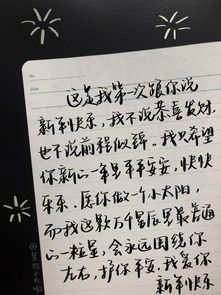 这是我第一次跟你说
新年快乐，我不说恭喜发财
也不说前程似锦。我只希望
你新的一年里平平安安，快快
乐乐。愿你做一个小太阳，
而我这颗万千星辰里最普通
的一粒星，会永远围绕你
左右，护你平安，我爱你
新年快乐